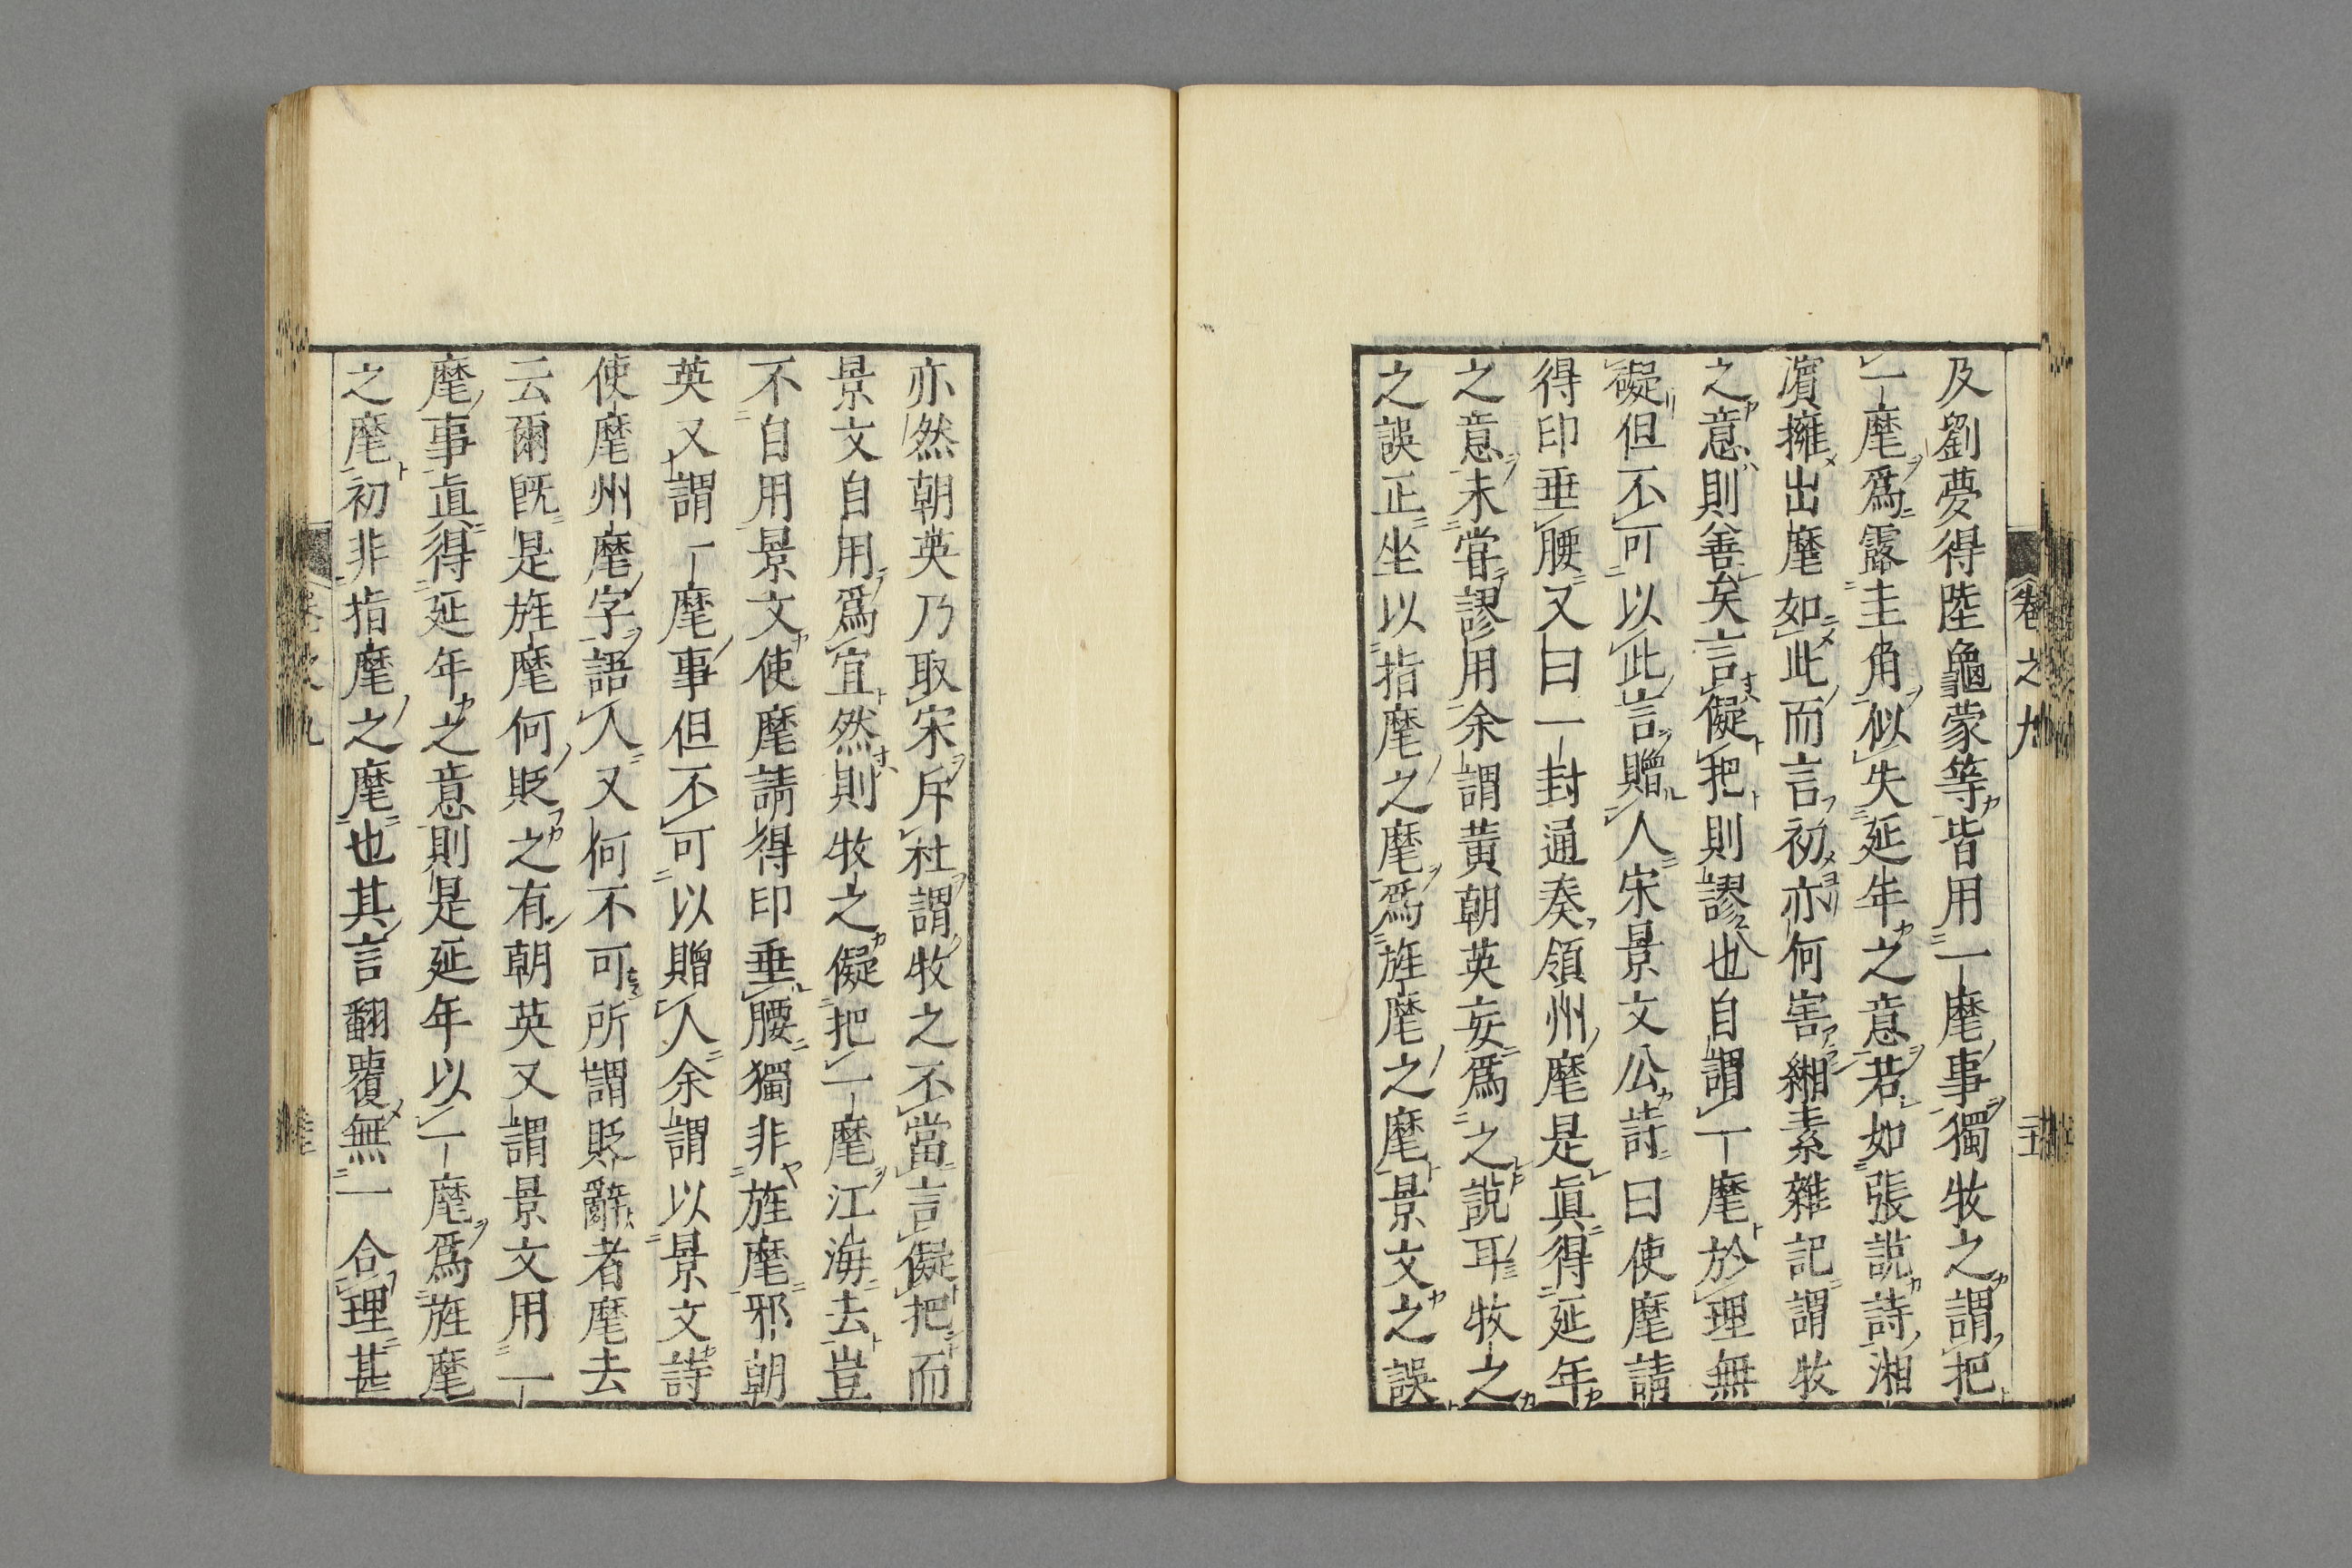 卷之九
及劉夢得陸龜蒙等皆用一麾事獨牧之謂把
一麾爲露圭角似失延年之意若如張說詩湘
濵擁出麾如此而言初亦何害緗素雜記謂牧
之意則善矣言儗把則謬也自謂一麾於理無
礙但不可以此言贈人宋景文公詩曰使麾請
得印垂腰又曰一封通奏領州麾是眞得延年
之意未甞謬用余謂黃朝英妄爲之說耳牧之
之誤正坐以指麾之麾爲旌麾之麾景文之誤
亦然朝英乃取宋斥杜謂牧之不當言儗把而
景文自用爲宜然則牧之儗把一麾江海去豈
不自用景文使麾請得印垂腰獨非旌麾邪朝
英又謂一麾事但不可以贈人余謂以景文詩
使麾州麾字語人又何不可所謂貶辭者麾去
云爾旣是旌麾何貶之有朝英又謂景文用一
麾事眞得延年之意則是延年以一麾爲旌麾
之麾初非指麾之麾也其言翻覆無一合理甚
卷之九